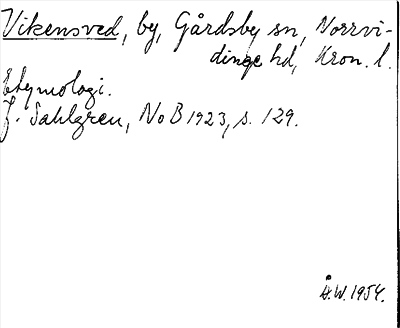 Vikensved, by, Gårdsby sn, Norrvi-
dinge hd, Kron. l.
Etymologi.
J. Sahlgren, NoB 1923, s. 129.
Å.W. 1954.